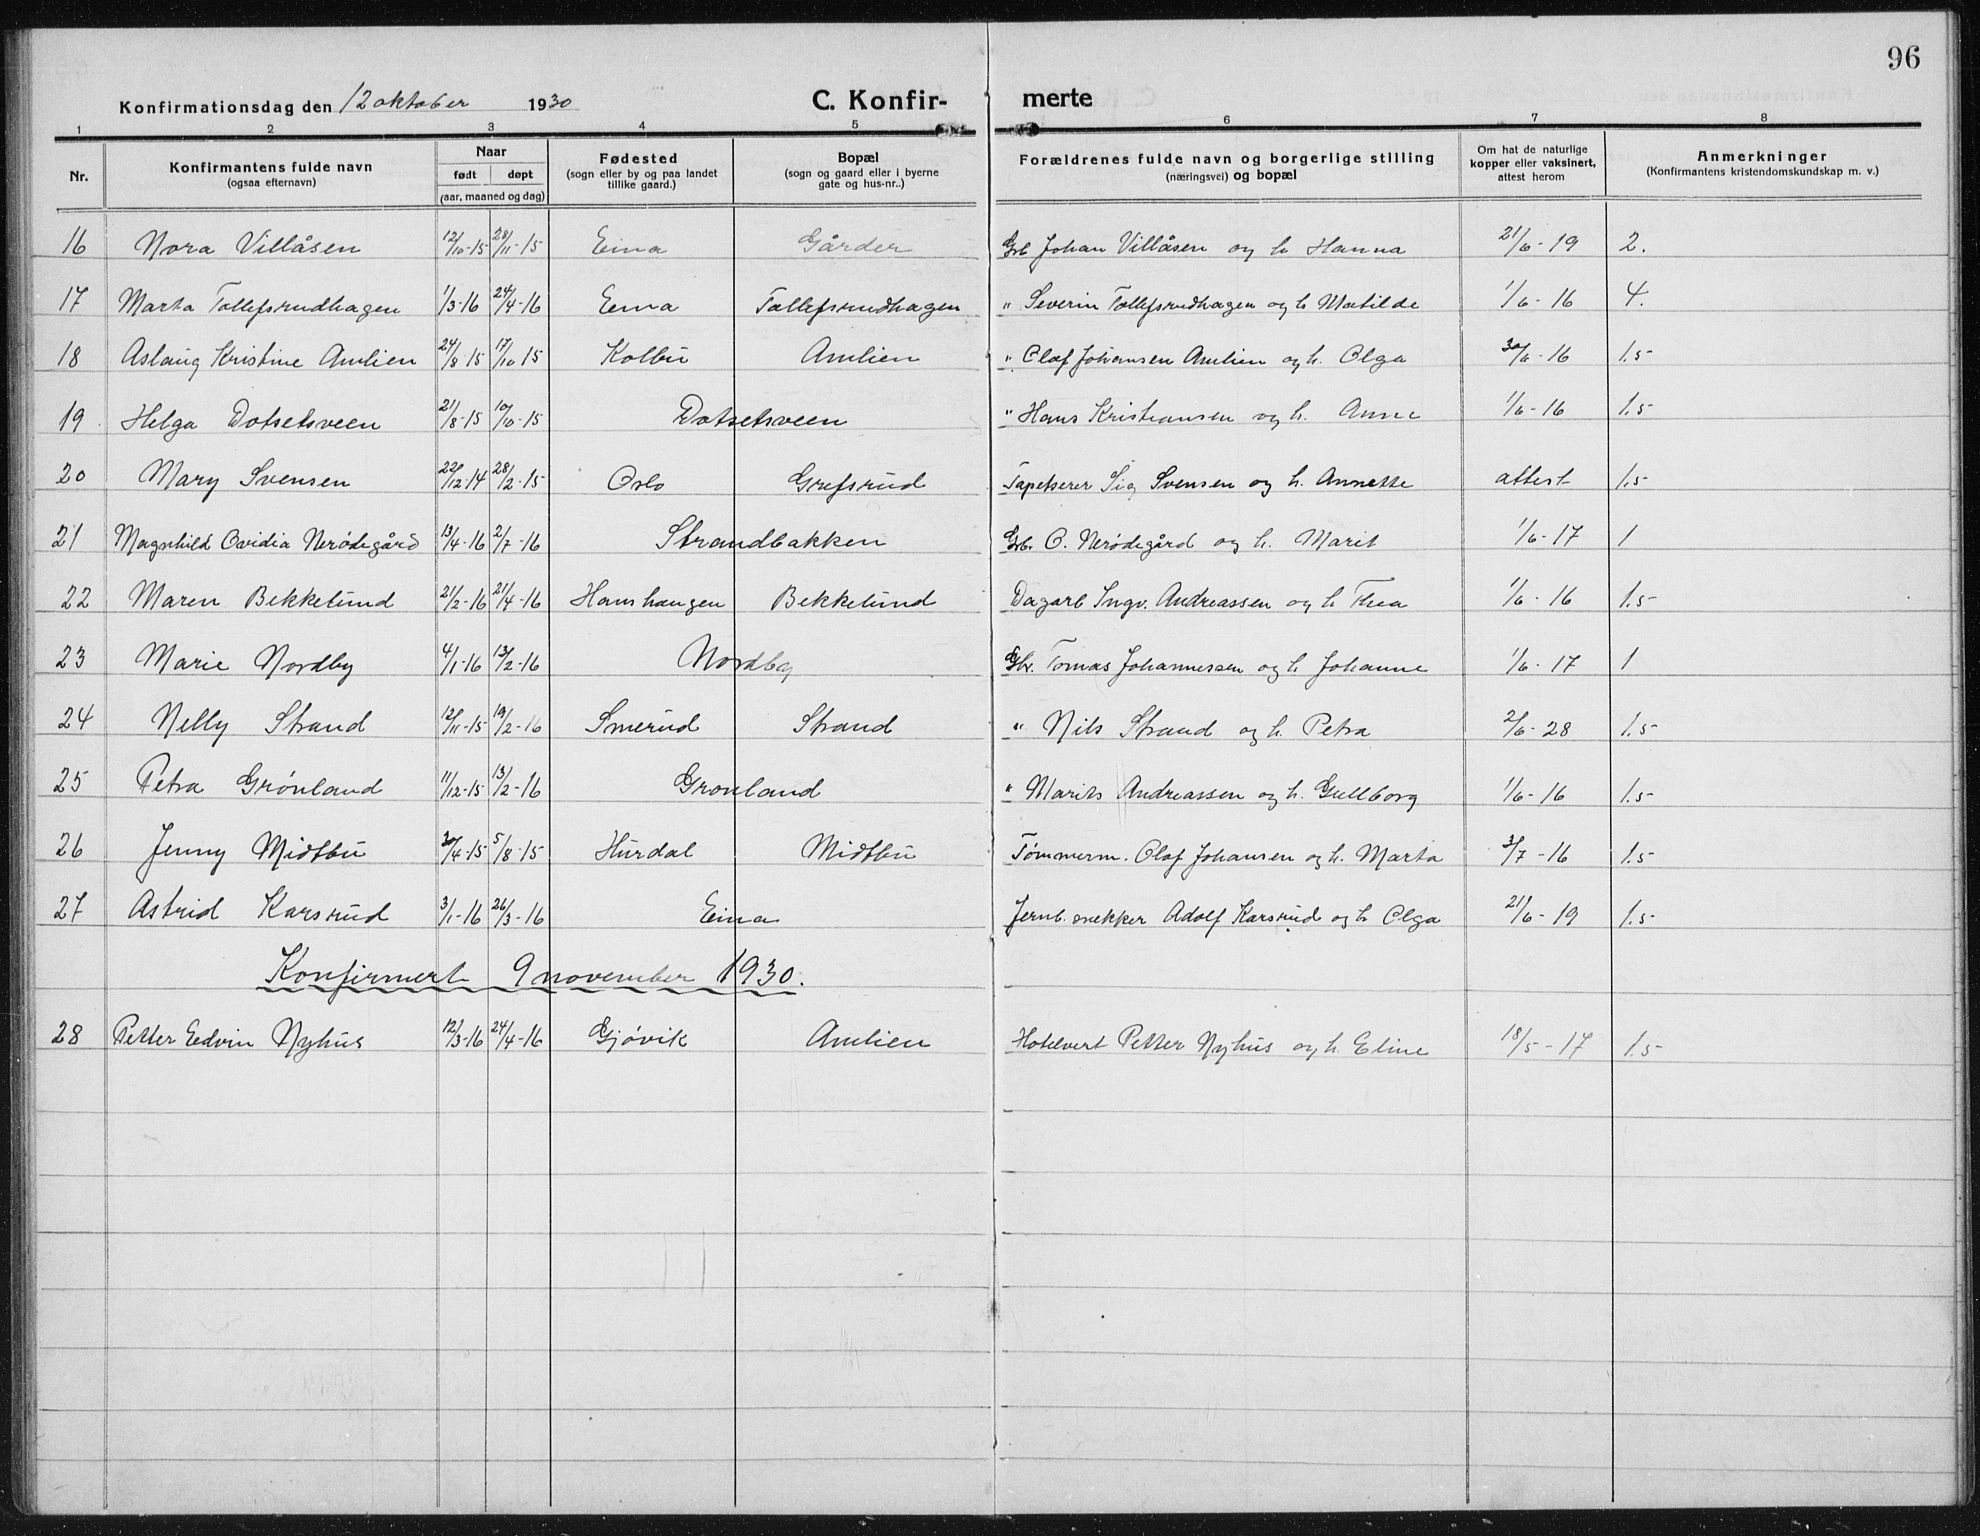 96
Konfirmationsdag den 12 oktober 1930 C. Konfir- merte
1 2 3 4 5 6 7 8
Nr.
Konfirmantens fulde navn
(ogsaa efternavn)
Naar
født døpt
(aar, maaned og dag)
Fødested
(sogn eller by og paa landet
tillike gaard.)
Bopæl
(sogn og gaard eller i byerne
gate og hus-nr..)
Forældrenes fulde navn og borgerlige stilling
(næringsvei) og bopæl
Om hat de naturlige
kopper eller vaksinert,
attest herom
Anmerkninger
(Konfirmantens kristendomskundskap m. v.)
16 Nora Villåsen 12/10-15 28/11-15 Eina Gårder Grb Johan Villåsen og h. Hanna 21/6-19 2.
17 Marta Tollefsrudhagen 1/3-16 24/4-16 Eina Tollefsrudhagen " Severin Tollefsrudhagen og h. Matilde 1/6-16 4.
18 Aslaug Kristine Amlien 24/8-15 17/10 15 Kolbu Amlien " Olaf Johansen Amlien og h. Olga 30/6-16 1.5
19 Helga Dotsetsveen 21/8-15 10/10-15 Dotsetsveen " Hans Kristiansen og h. Anne 1/6-16 1.5
20 Mary Svensen 22/12-14 28/2-15 Oslo Grefsrud Tapetserer Sig Svensen og h. Annette attest 1.5
21 Magnhild Ovidia Nerødegård 13/4-16 2/7-16 Strandbakken Grb. O. Nerødegård og h. Marit 1/6-17 1
22 Maren Bekkelund 21/2-16 21/4-16 Hanshaugen Bekkelund Dagarb Ingv. Andreassen og h Thea 1/6-16 1.5
23 Marie Nordby 4/1-16 13/2-16 Nordby Gbr. Tomas Johannessen og h. Johanne 1/6-17 1
24 Nelly Strand 12/11-15 19/2-16 Smerud Strand " Nils Strand og h. Petra 2/6-28 1.5
25 Petra Grønland 11/12-15 13/2-16 Grønland " Marits Andreassen og h. Gullborg 1/6-16 1.5
26 Jenny Midtbu 30/4-15 5/8-15 Hurdal Midtbu Tømmerm. Olaf Johansen og h. Marta 3/7-16 1.5
27 Astrid Karsrud 3/1-16 26/3-16 Eina Jernb. snekker Adolf Karsrud og h Olga 21/6-19 1.5
Konfirmert 9 november 1930.
28 Petter Edvin Nyhus 12/3-16 24/4-16 Gjøvik Amlien Hotelvert Petter Nyhus og h. Eline 18/5-17 1.5